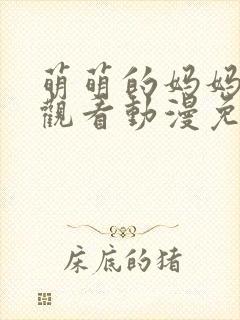 萌萌的妈妈
觀看動漫免
床底的猪